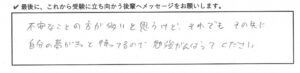 ✓ 最後に、これから受験に立ち向かう後輩へメッセージをお願いします。
不安なことの方が多いと思うけど、それでもその先に
自分の夢がまっと待ってるので勉強がんばってください